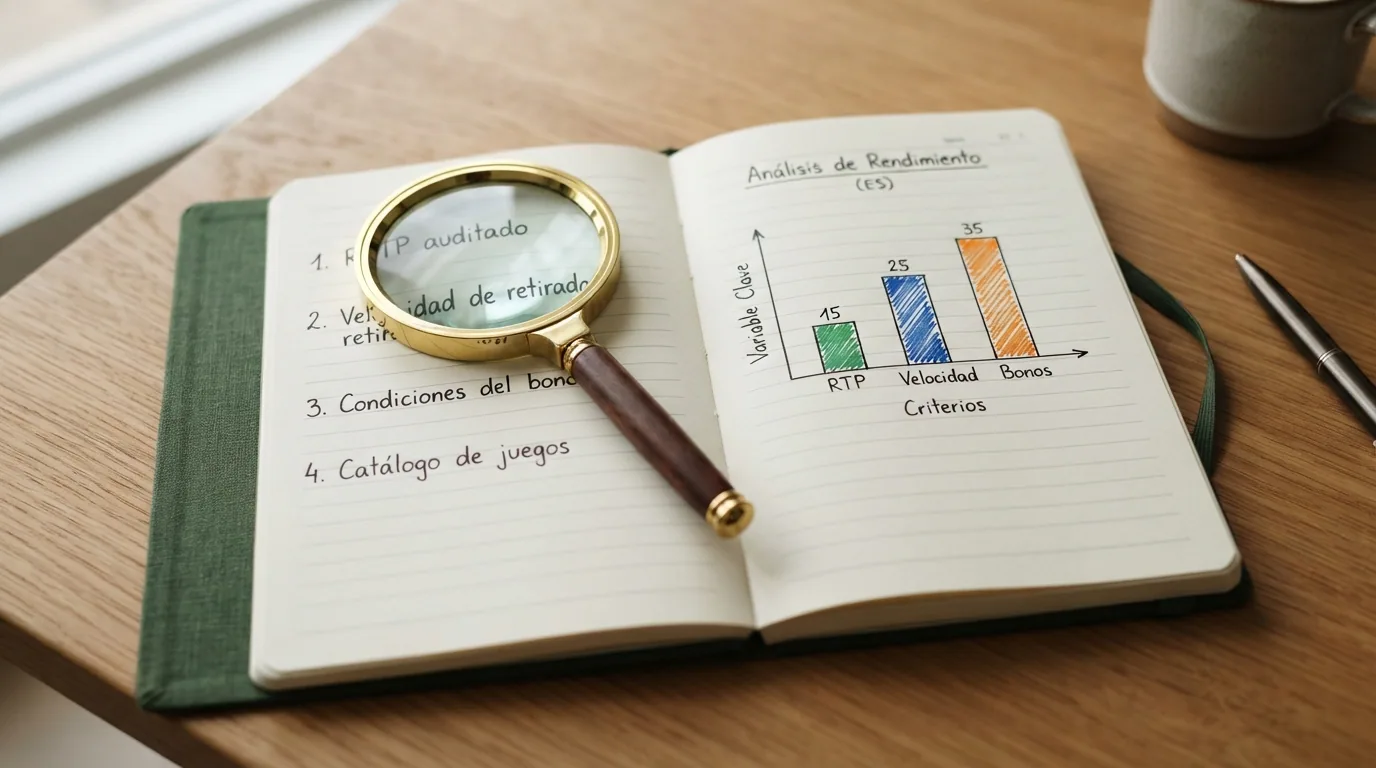 1. RTP auditado
2. Vel idad de retirado
retir
3. Condiciones del bono
4. Catálogo de juegos
Análisis de Rendimiento
(ES)
35
25
15
Variable Clave
RTP Velocidad Bonos
Criterios